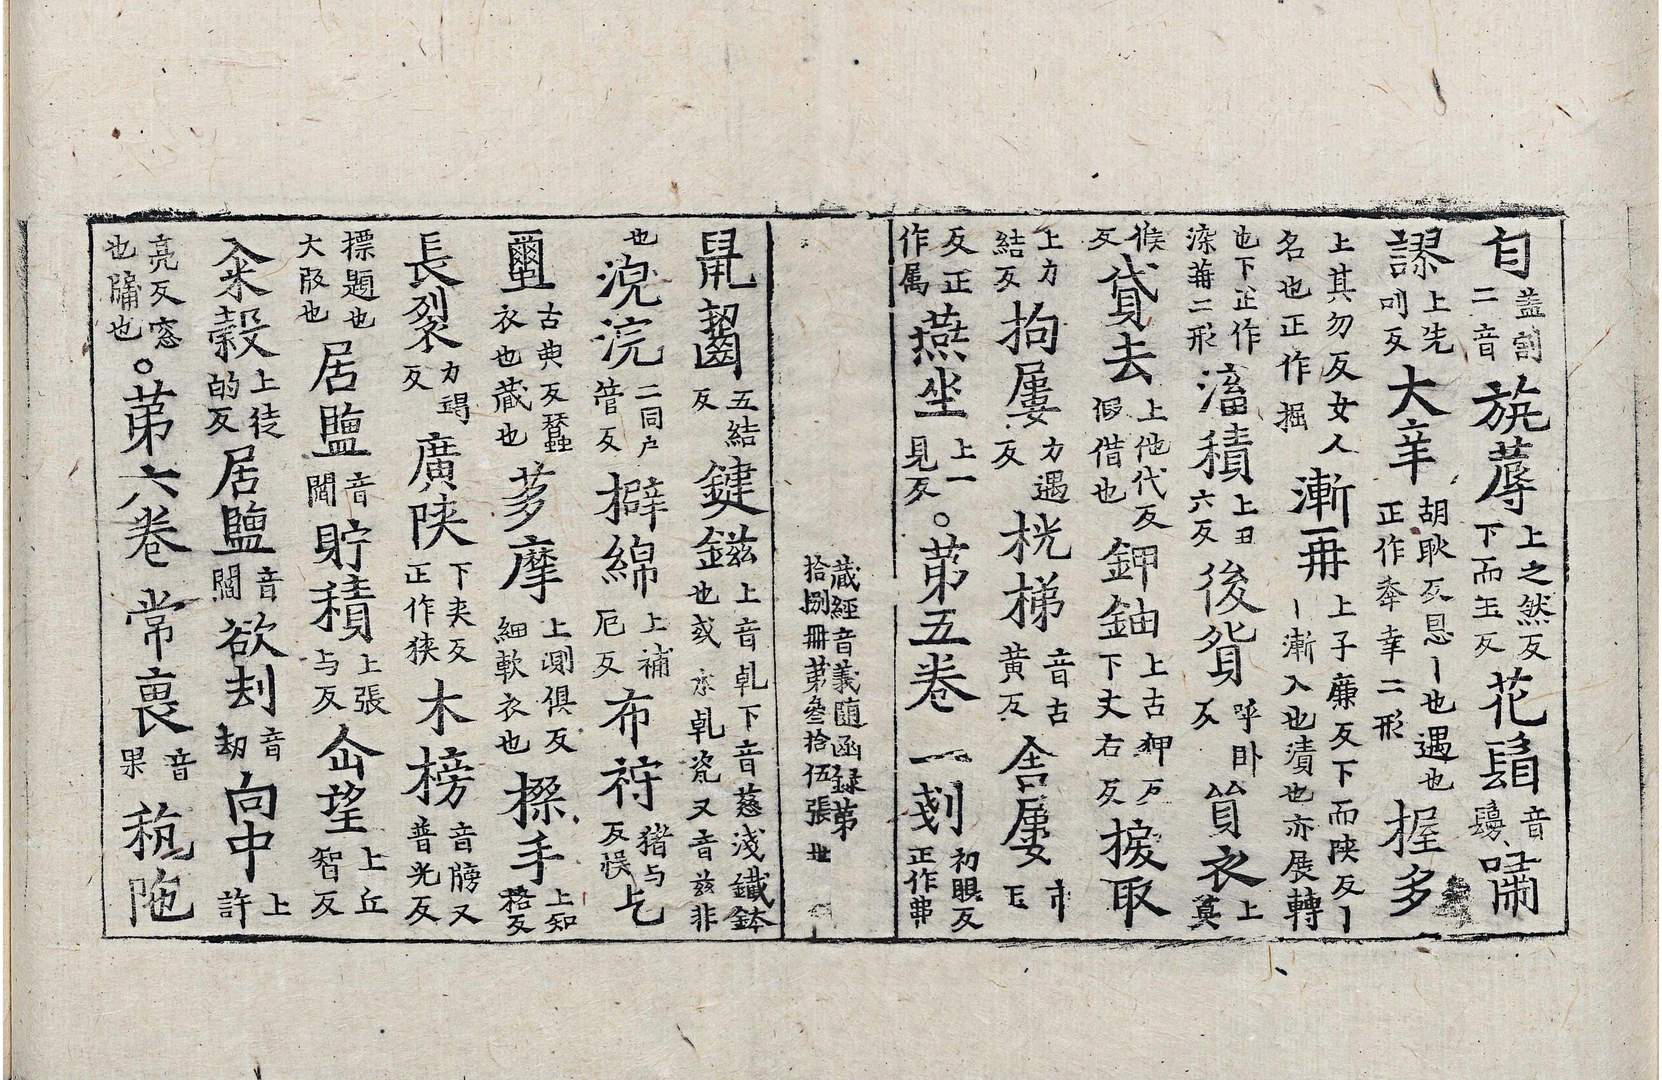 匄蓋割二音旃蓐上之然反下而玉反花鬘音鬘𠴨
謬上先吅反大㚔胡耿反㤙丨也遇也正作㚔幸二形握多
上其勿反女人名也正作掘漸冊上子廉反下而陕反丨丨漸入也漬也亦展轉
也下㱏作㴱蓱二形滀積上丑六反後貲呼卧反貿衣上莫
候反貸去上他代反假借也鉀鈾上古狎反下丈右反捑取
上力結反拘屢力遇反桄梯音古黃反舍屢
反正作属燕坐上一見反。苐五卷 一剗初眼反正作弗
蔵經音義随函録第
拾捌冊第叁拾伍張
鼿齧五結反鍵鎡上音乹下音慈淺鐵鉢也或乹瓷又音兹非
也涀浣二同户管反擗綿上補厄反布䘢猪与反悮乞
𧝓古典反蠶衣也蔵也荗摩上測俱反細軟衣也㯿手上知格反
長裂力竭反廣陕下夾反正作狭木榜音牓又普光反
標題也大㱾也居鹽音閻貯積上張与反仚望上丘智反
籴榖上徒的反居鹽音閻欲刦音劫向中上許
亮反窓也牖也。苐六卷 常裹音果秔陁